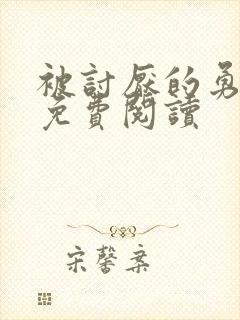 被討厭的勇
免費閱讀
宋馨案